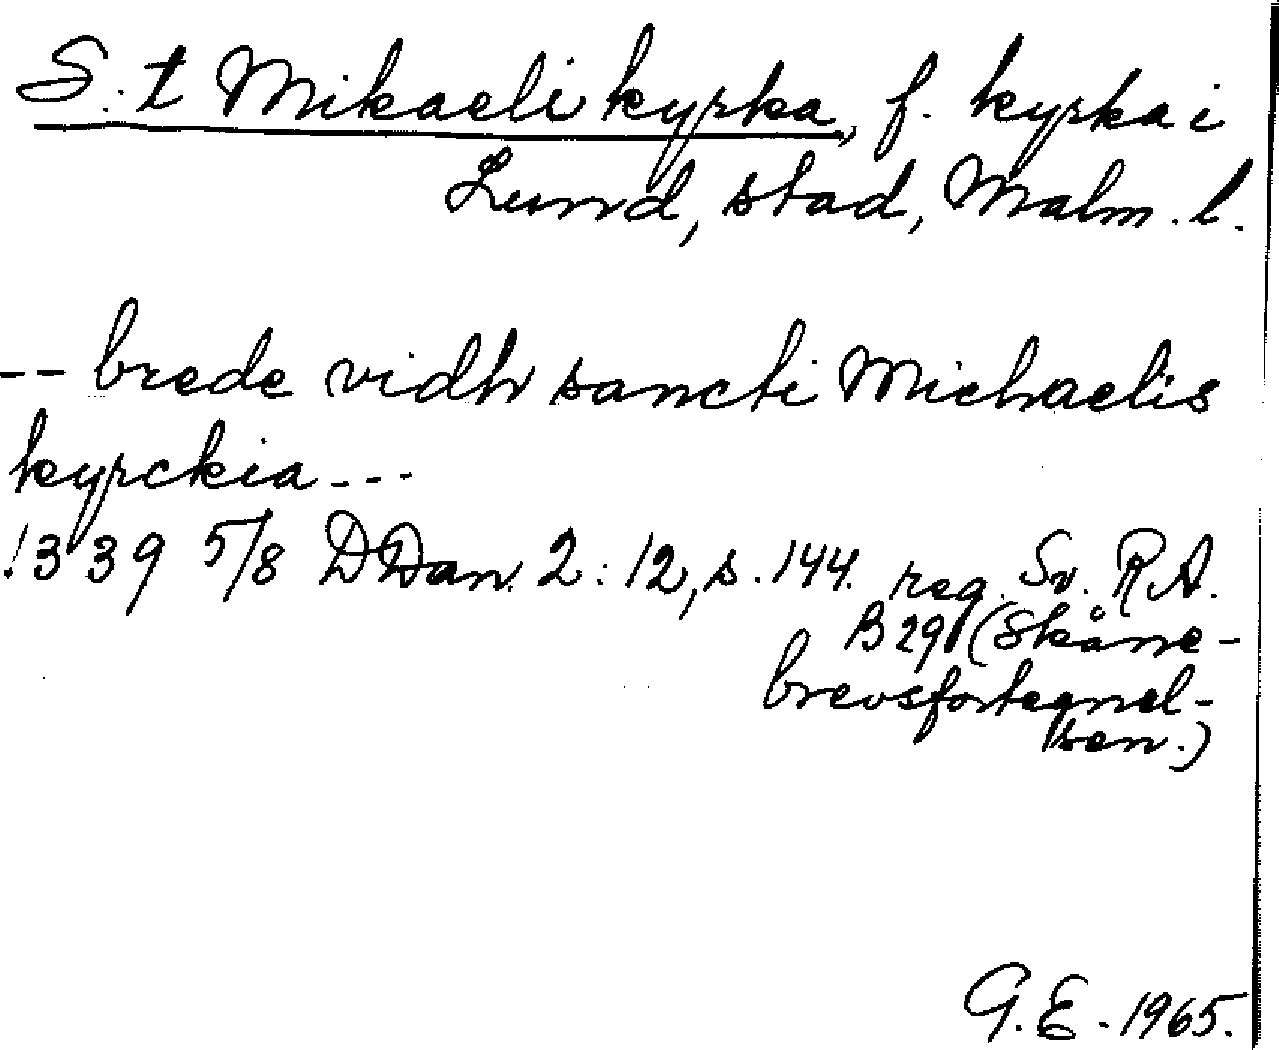 S:t Mikaeli kyrka, f. kyrka i
Lund, stad, Malm. l.
-- brede vidh sancti Michaelis
kyrckia ---
1339 5/8 DDan. 2:12, s. 144. reg. Sv. RA.
B 29 (Skåne-
brevsfortegnel-
sen.)
G.E. 1965.